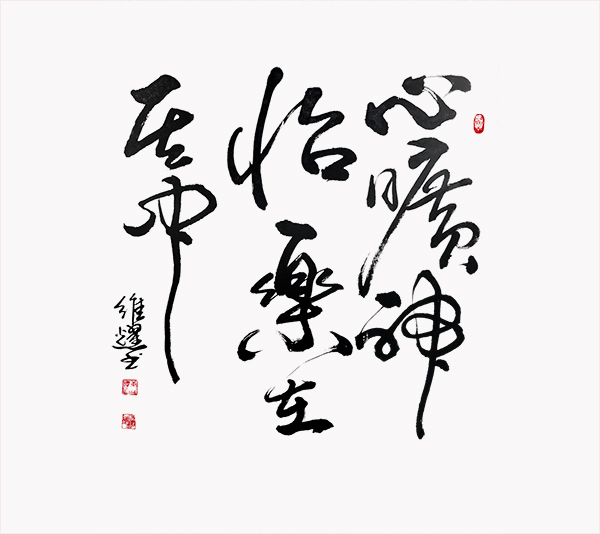 心曠神
怡樂在
其中
維耀書